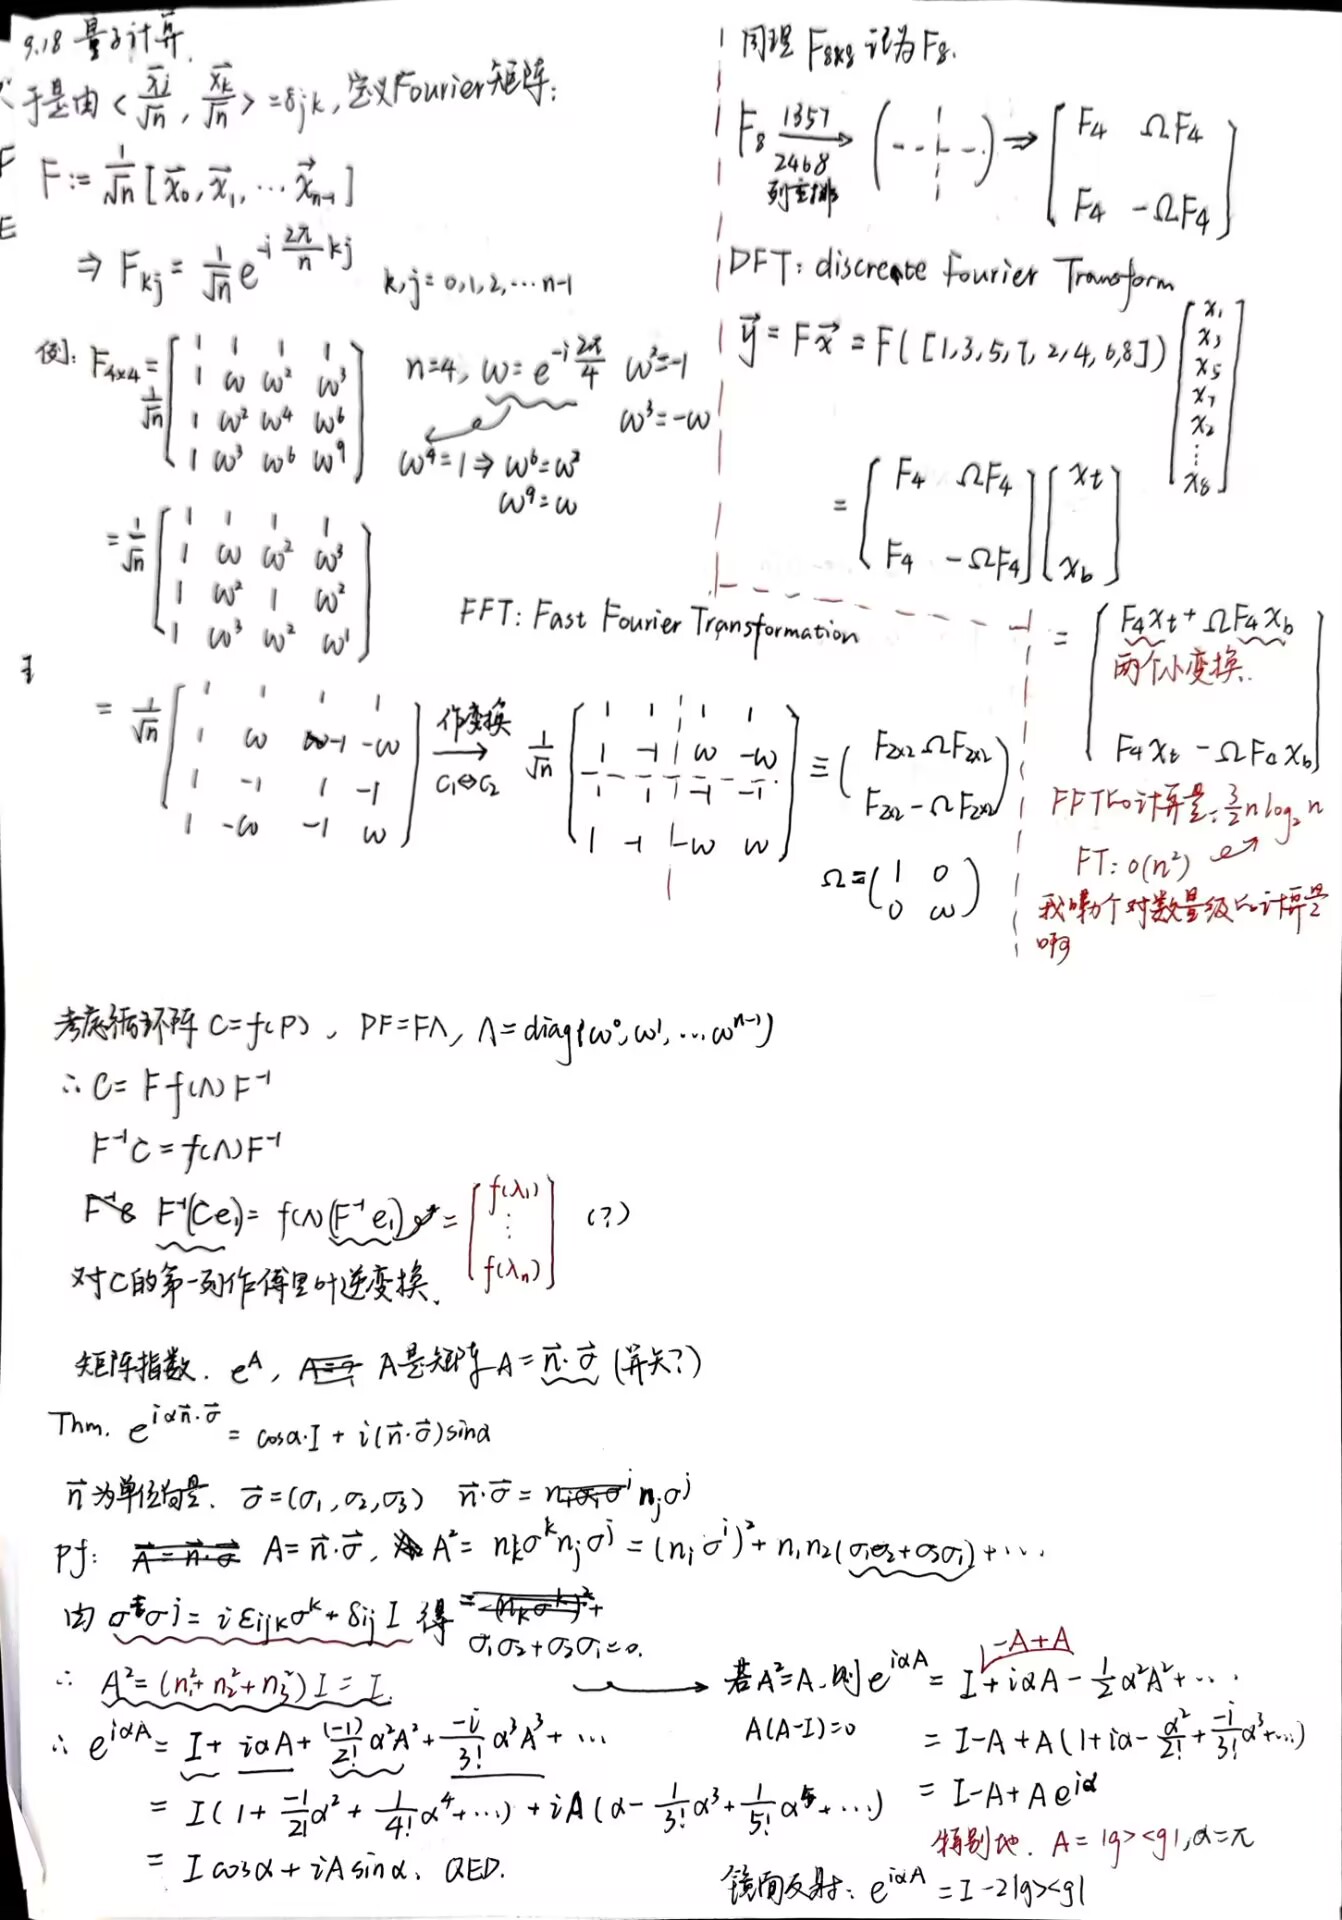 9.18 量子计算.
于是由 < x⃗j/√n , x⃗k/√n > = δjk, 定义Fourier矩阵:
F := 1/√n [x⃗0, x⃗1, ... x⃗n-1]
⇒ Fkj = 1/√n e^(-i 2π/n kj)   k,j = 0,1,2,...n-1
例: F4x4 = 1/√n [1 1 1 1; 1 ω ω² ω³; 1 ω² ω⁴ ω⁶; 1 ω³ ω⁶ ω⁹]   n=4, ω = e^(-i 2π/4)   ω²=-1
ω³=-ω
ω⁴=1 ⇒ ω⁶=ω²
ω⁹=ω
= 1/√n [1 1 1 1; 1 ω ω² ω³; 1 ω² 1 ω²; 1 ω³ ω² ω¹]
FFT: Fast Fourier Transformation
= 1/√n [1 1 1 1; 1 ω -1 -ω; 1 -1 1 -1; 1 -ω -1 ω] 作变换 → C1⇔C2 1/√n [1 1 1 1; 1 -1 ω -ω; 1 1 -1 -1; 1 -1 -ω ω] ≡ (F2x2 ΩF2x2; F2x2 -ΩF2x2)
Ω = (1 0; 0 ω)
同理 F8x8 记为 F8.
F8 1357 → 2468 列重排 (  ) ⇒ [F4 ΩF4; F4 -ΩF4]
DFT: discreate Fourier Transform
y⃗ = Fx⃗ = F([1,3,5,7,2,4,6,8]) [x1 x3 x5 x7 x2 ⋮ x8]
= [F4 ΩF4; F4 -ΩF4] [xt; xb]
= [F4xt + ΩF4xb; F4xt - ΩF4xb]
两个小变换.
FFT的计算量: 3/2 n log₂ n
FT: O(n²)
我嘞个对数量级的计算量
啊
考虑循环阵 C=f(P), PF=FΛ, Λ=diag{ω⁰,ω¹,...ωⁿ⁻¹}
∴ C = F f(Λ) F⁻¹
F⁻¹C = f(Λ)F⁻¹
F⁻¹(Ce1) = f(Λ)(F⁻¹e1) = [f(λ1) ⋮ f(λn)] (?)
对C的第一列作傅里叶逆变换.
矩阵指数. e^A, A是矩阵 A = n⃗·σ⃗ (算矢?)
Thm. e^(iαn⃗·σ⃗) = cosα·I + i(n⃗·σ⃗)sinα
n⃗为单位向量. σ⃗=(σ1,σ2,σ3)   n⃗·σ⃗ = njσ^j
Pf: A = n⃗·σ⃗, A² = nkσ^k njσ^j = (niσ^i)² + n1n2(σ1σ2+σ2σ1) + ...
由 σ^iσ^j = iεijkσ^k + δij I 得 σ1σ2+σ2σ1=0.
∴ A² = (n1²+n2²+n3²)I = I.
∴ e^(iαA) = I + iαA + (-1)/2! α²A² + -i/3! α³A³ + ...
= I(1 + -1/2! α² + 1/4! α⁴ + ...) + iA(α - 1/3! α³ + 1/5! α⁵ + ...)
= I cosα + iA sinα. QED.
-A+A
若A²=A, 则 e^(iαA) = I + iαA - 1/2 α²A² + ...
A(A-I)=0   = I-A + A(1+iα - α²/2! + -i/3! α³ + ...)
= I-A+Ae^(iα)
特别地. A=|g><g|, α=π
镜面反射: e^(iαA) = I-2|g><g|